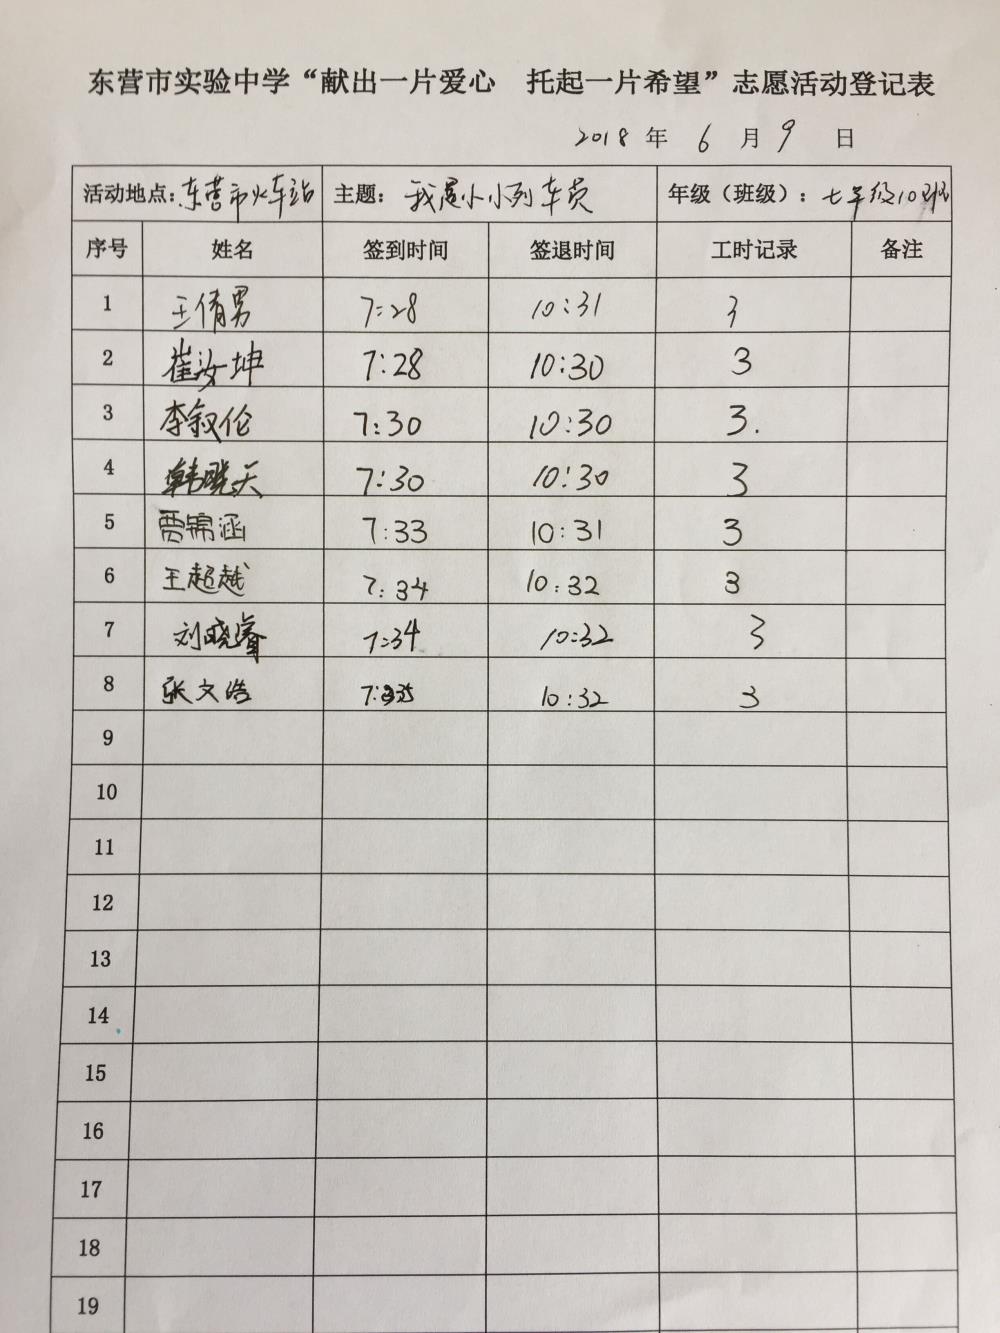 东营市实验中学“献出一片爱心　托起一片希望”志愿活动登记表
2018 年 6 月 9 日
活动地点：东营市火车站 主题： 我是小小列车员 年级（班级）：七年级10班
序号 姓名 签到时间 签退时间 工时记录 备注
1 王倩男 7:28 10:31 3
2 崔汝坤 7:28 10:30 3
3 李叙伦 7:30 10:30 3.
4 韩晓天 7:30 10:30 3
5 贾锦涵 7:33 10:31 3
6 王超越 7:34 10:32 3
7 刘晓睿 7:34 10:32 3
8 张文浩 10:32 3
9
10
11
12
13
14
15
16
17
18
19